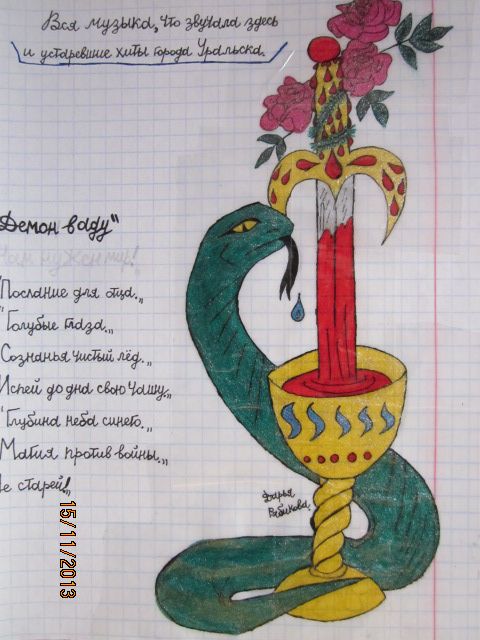 Вся музыка, что звучала здесь
и устаревшие хиты города Уральска.
"Демон в аду"
Нам нужен мир!
"Послание для отца.„
"Голубые глаза.„
Сознанья чистый лёд.„
Испей до дна свою чашу.„
"Глубина неба синего.„
Магия против войны.„
Не старей!„
Дарья
Рябикова.
15/11/2013